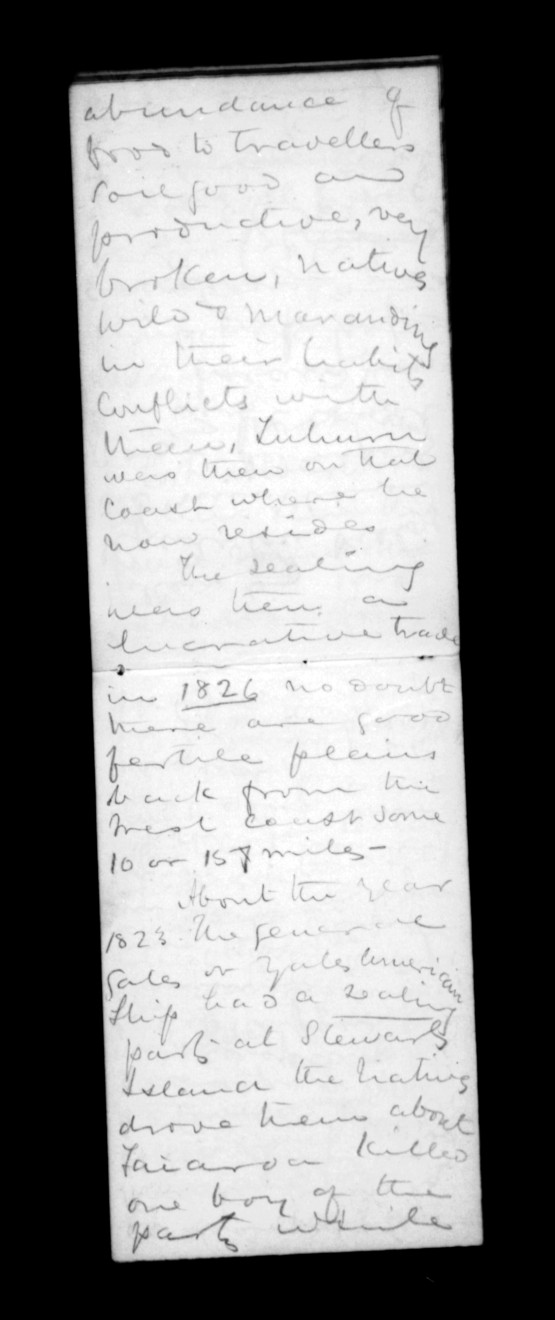 abundance of
food to travellers
soil good and
productive, very
broken, natives
wild & marauding
in their habits
Conflicts with
them,
was then on that
Coast where he
now resides
The sealing
was then a
lucrative trade
in 1826 no doubt
there are good
fertile plains
back from the
West coast some
10 or 15 miles -
About the year
1823 The general
Gates or Yates American
Ship had a sealing
party at Stewarts
Island the natives
drove them about
Taiaroa killed
one boy of the
party while